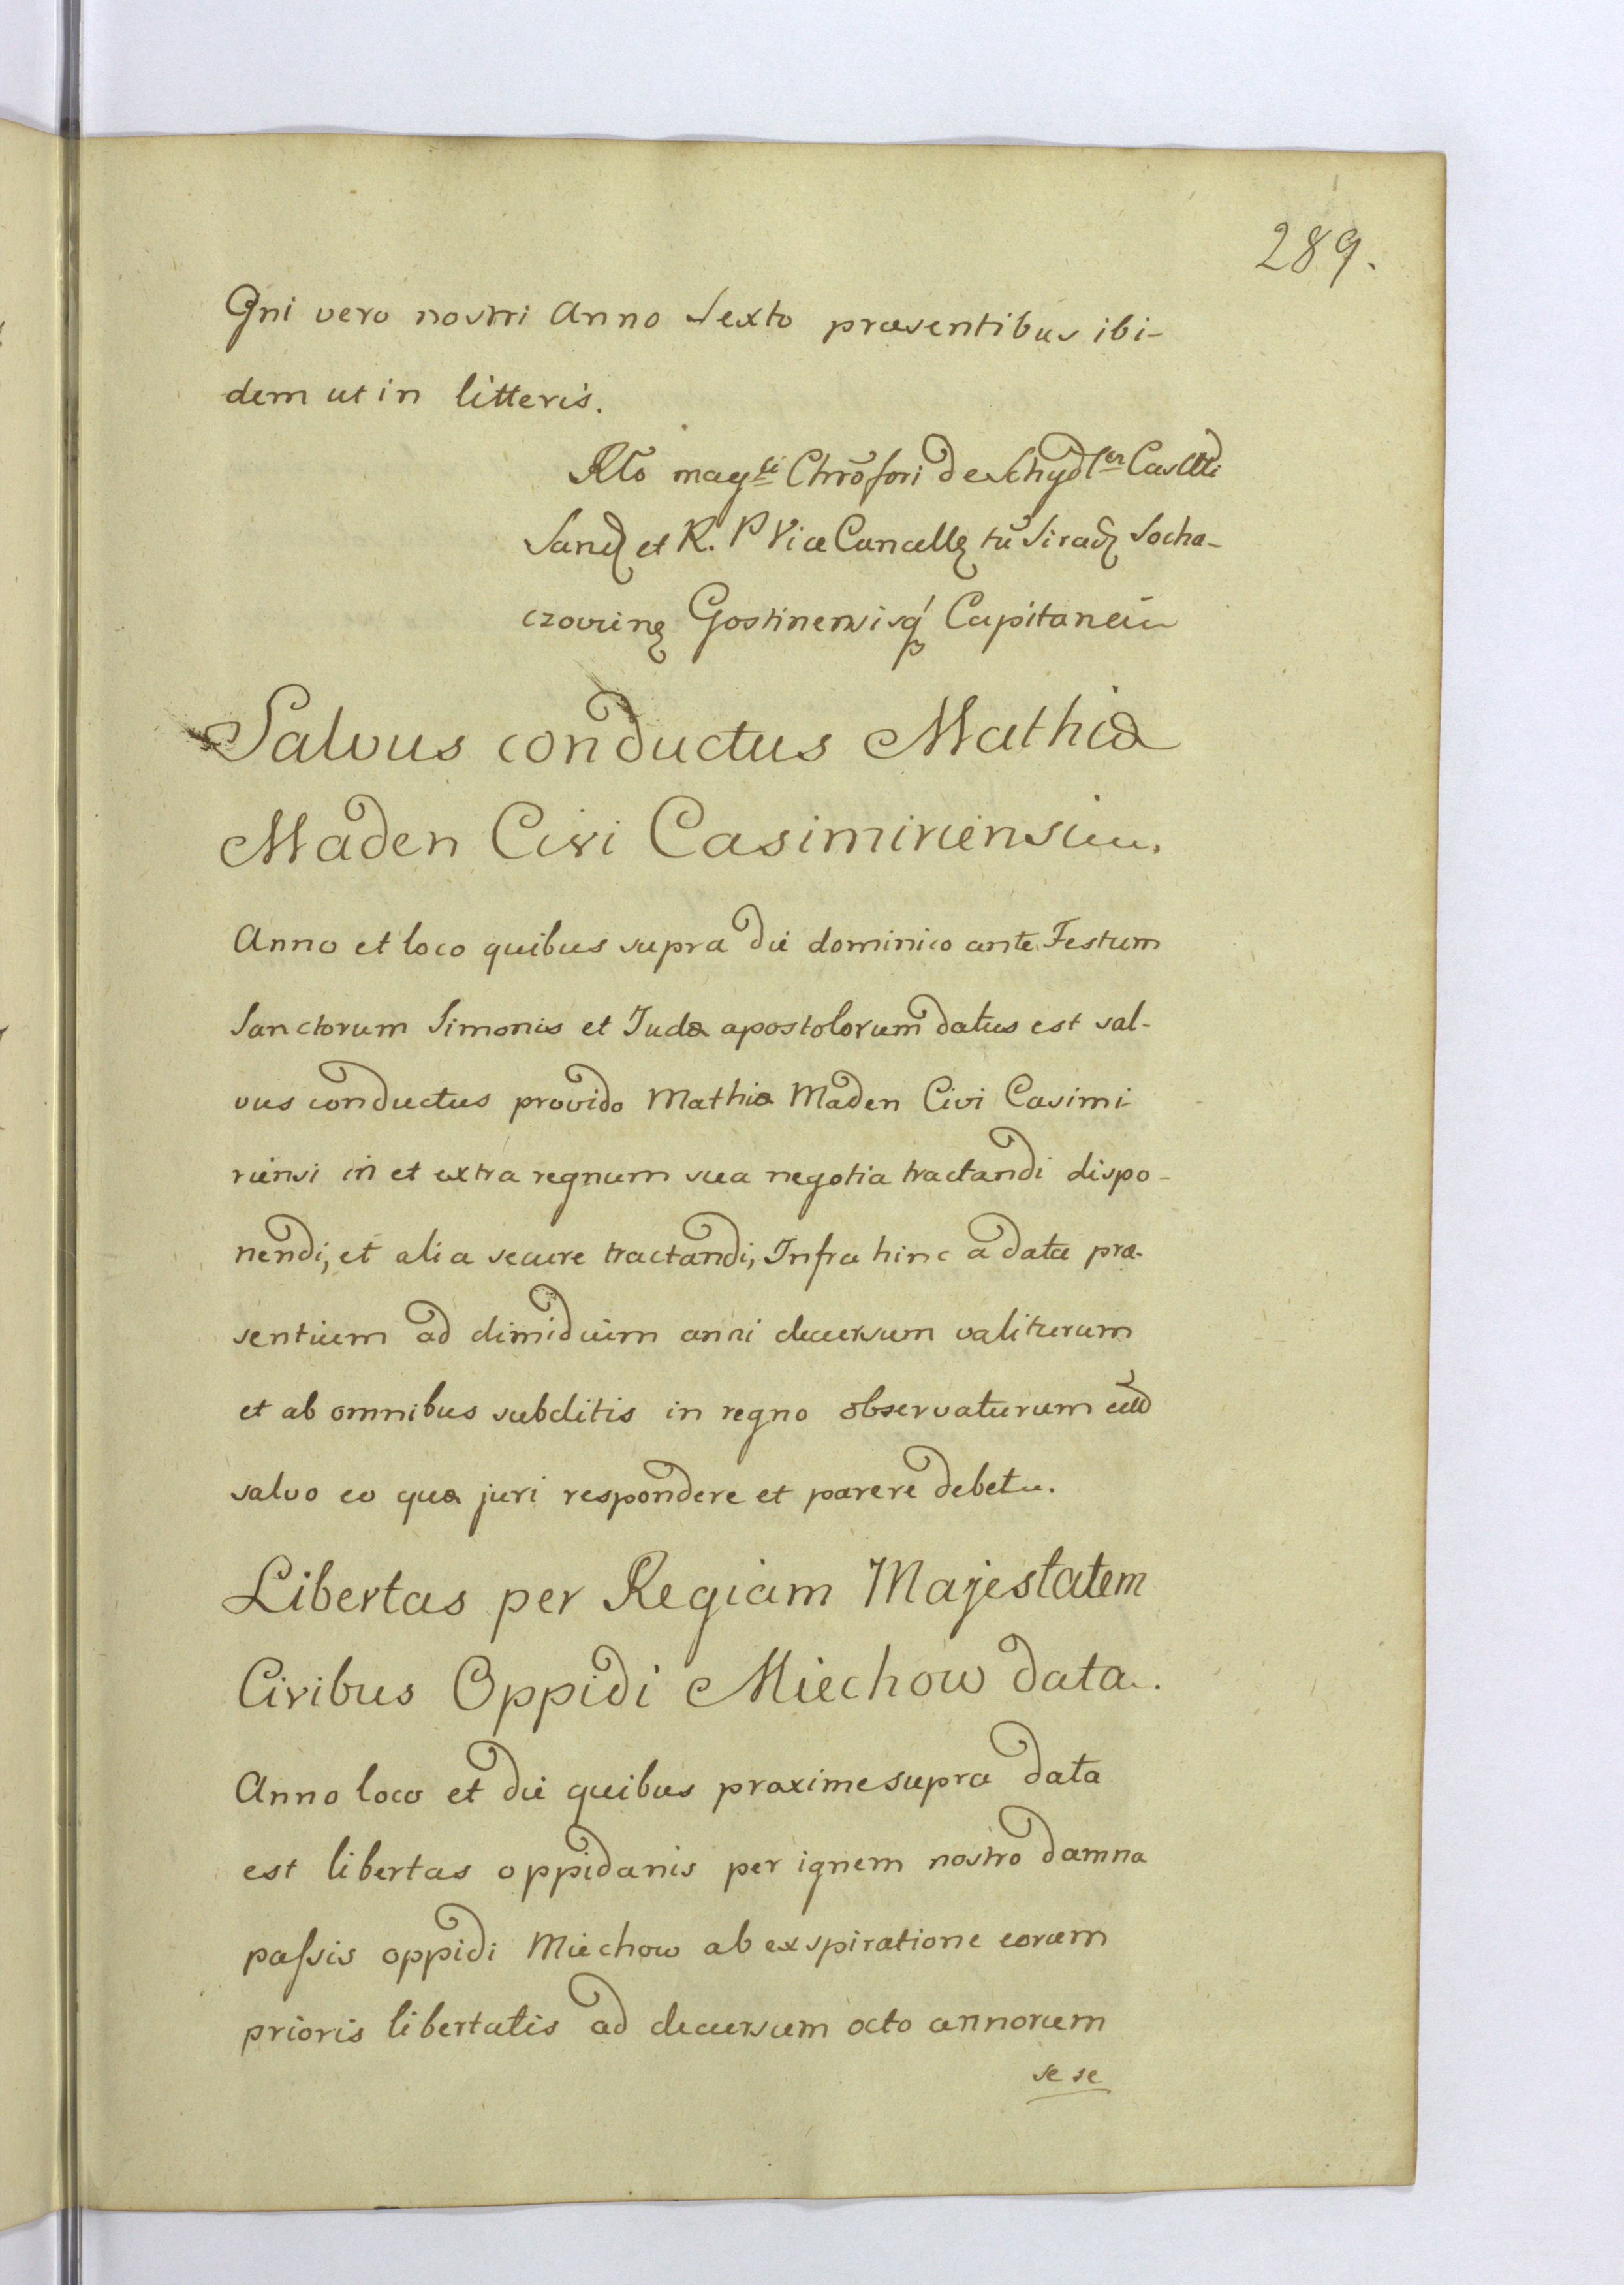 289.
Gni vero nostri Anno Sexto præsentibus ibi-
dem ut in litteris.
Rlo mag ci Chrõfori de Schydl en Castlli
Sand et R. P Vice Cancell tũ Sirad Socha-
czovien Gostinensisq́ Capitanei
Salvus conductus Mathiæ
Maden Civi Casimiriensi
Anno et loco quibus supra die dominico ante Festum
Sanctorum Simonis et Judæ apostolorum datus est sal-
vus conductus provido Mathiæ Maden Civi Casimi-
riensi in et extra regnum sua negotia tractandi dispo-
nendi, et alia secure tractandi, Infra hinc a data præ-
sentium ad dimidium anni decursum valiturum
et ab omnibus subditis in regno observaturum
salvo eo quæ juri respondere et parere debet.
Libertas per Regiam Majestatem
Civibus Oppidi Miechow data.
Anno loco et die quibus proxime supra data
est libertas oppidanis per ignem nostro damna
passis oppidi Miechow ab exspiratione eorum
prioris libertatis ad decursum octo annorum
se se